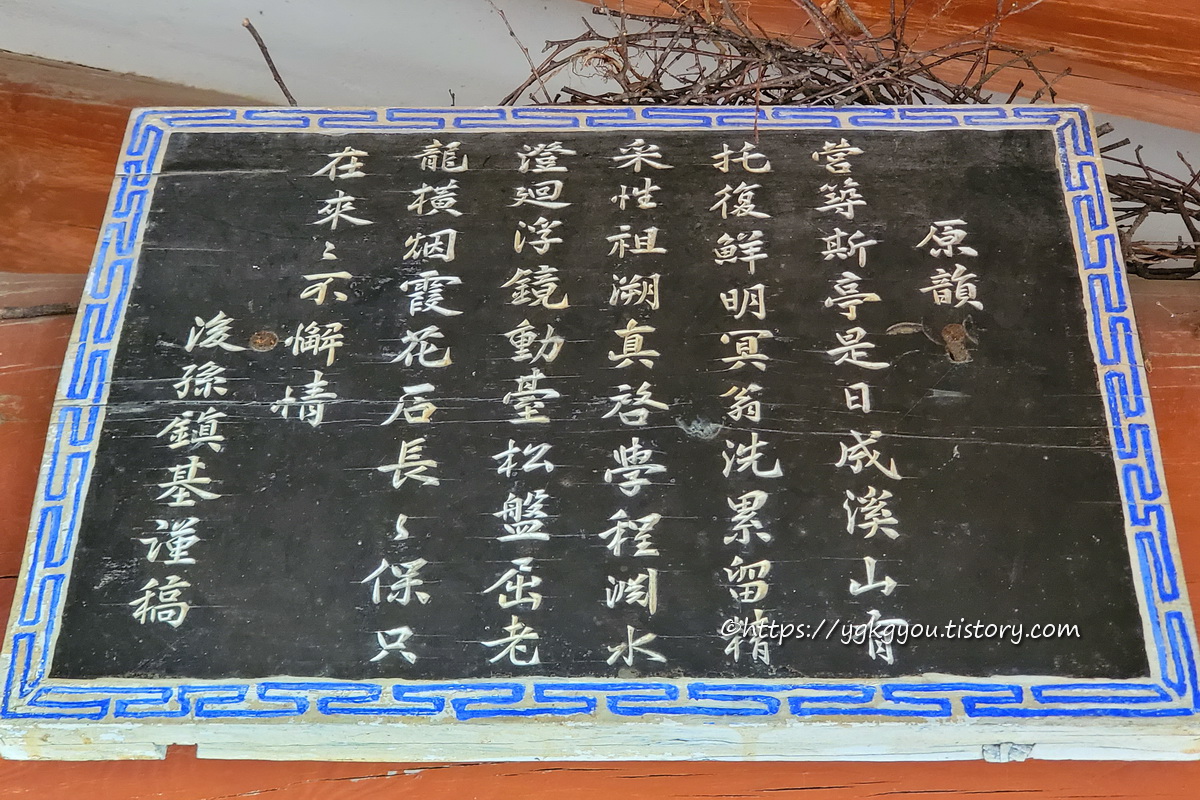 原韻
營築斯亭是日成溪山有
托復鮮明冥翁洗累留精
采性祖溯真啓學程淵水
澄廻浮鏡動臺松盤屈老
龍橫烟霞花石長〻保只
在來〻不懈情
後孫鎭基謹稿
©https://ygkgyou.tistory.com